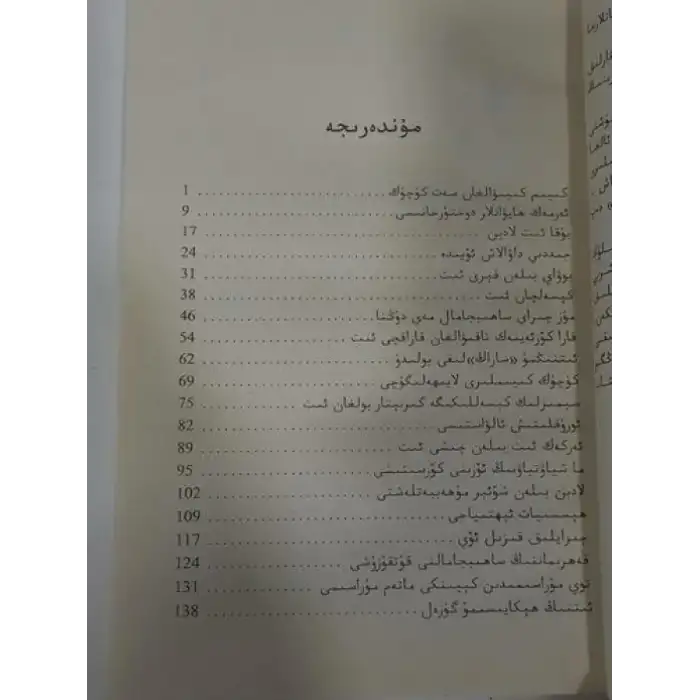 مۇندەرىجە
كىيىم كىيىۋالغان مەت كۈچۈك 1
ئەرمەك ھايۋانلار دوختۇرخانىسى 9
بۇقا ئىت لادىن 17
جىددىي داۋالاش ئۆيىدە 24
بوۋاي بىلەن قېرى ئىت 31
كېسەلچان ئىت 38
مۇز چىراي ساھىبجامال مەي دۇڭنا 46
قارا كۆزئەينەك تاقىۋالغان قاراقچى ئىت 54
ئىتنىڭمۇ «ساراڭ»لىقى بولىدۇ 62
كۈچۈك كىيىملىرى لايىھەلىگۈچى 69
سېمىزلىك كېسەللىكىگە گىرىپتار بولغان ئىت 75
ئورۇقلىتىش ئالۋاستىسى 82
ئەركەك ئىت بىلەن چىشى ئىت 89
ما شياۋتياۋنىڭ ئۆزىنى كۆرسىتىشى 95
لادىن بىلەن شۆئېر مۇھەببەتلەشتى 102
ھېسسىيات ئېھتىياجى 109
چىرايلىق قىزىل ئۆي 117
قەھرىماننىڭ ساھىبجامالنى قۇتقۇزۇشى 124
توي مۇراسىمىدىن كېيىنكى ماتەم مۇراسىمى 131
ئىتنىڭ ھېكايىسىمۇ گۈزەل 138